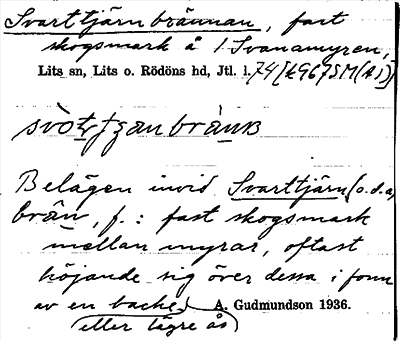 Svarttjärnbrännan, fast
skogsmark å 1. Svanamyren,
Lits sn, Lits o. Rödöns hd, Jtl. l. 74 [£967 SM(A1)]
Belägen invid Svarttjärn (o.d.a)
brän, f.: fast skogsmark
mellan myrar, oftast
höjande sig över dessa i form
av en backe
A. Gudmundson 1936.
(eller lägre ås)